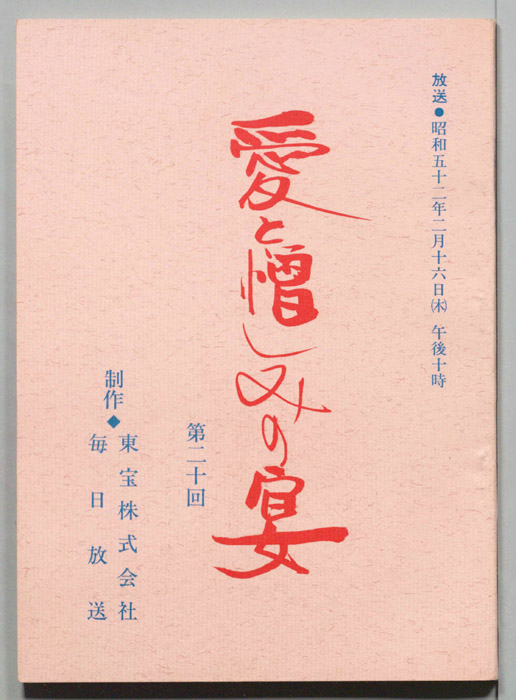 放送●昭和五十二年二月十六日㈭ 午後十時
愛と憎しみの宴
第二十回
制作◆
東宝株式会社
毎日放送